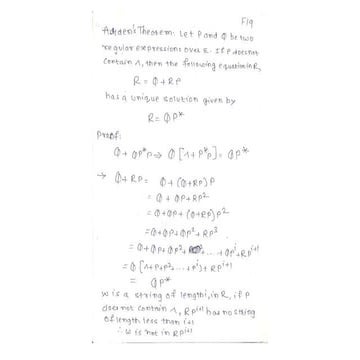 F/9
Arden's Theorem: Let P and Q be two
regular expressions over Σ. If P does not
contain Λ, then the following equation in R,
R = Q + RP
has a unique solution given by
R = QP*
Proof:
Q + QP*P ⇒ Q [Λ + P*P] = QP*
→ Q + RP = Q + (Q+RP)P
= Q + QP + RP²
= Q + QP + (Q+RP)P²
= Q + QP + QP² + RP³
= Q + QP + QP² + ... + QPⁱ + RPⁱ⁺¹
= Q [Λ + P + P² + ... + Pⁱ] + RPⁱ⁺¹
= QP*
w is a string of length i, in R, if P
does not contain Λ, RPⁱ⁺¹ has no string
of length less than i+1
∴ w is not in RPⁱ⁺¹